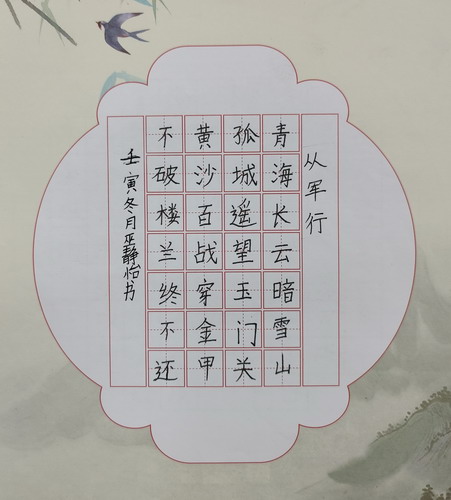 从军行
青海长云暗雪山
孤城遥望玉门关
黄沙百战穿金甲
不破楼兰终不还
壬寅冬月巫静怡书